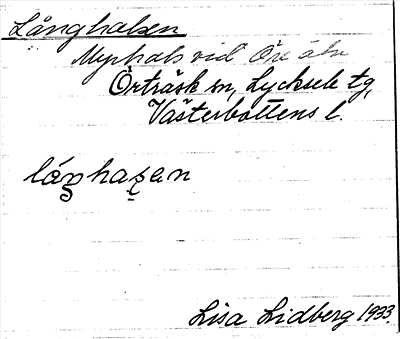 Långhalsen
Myrhals vid Öre älv
Örträsk sn, Lycksele tg,
Västerbottens l.
láŋhaʂən
Lisa Lidberg 1933.